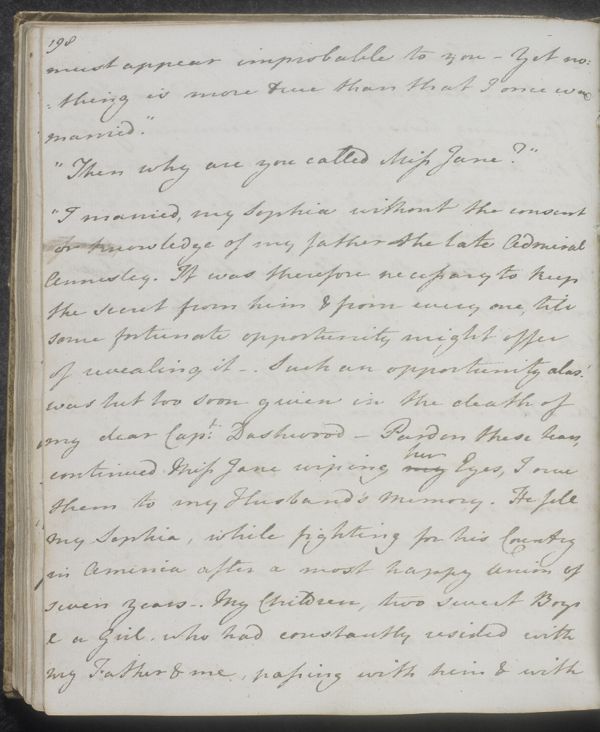 198
must appear improbable to you – Yet no:
:thing is more true than that I once was
married."
"Then why are you called Miss Jane?"
"I married, my Sophia without the consent
or knowledge of my father the late Admiral
Annesley. It was therefore necessary to keep
the secret from him & from every one, till
some fortunate opportunity might offer
of revealing it –. Such an opportunity alas!
was but too soon given in the death of
my dear Capt. Dashwood – Pardon these tears,
continued Miss Jane wiping my her Eyes, I owe
them to my Husband's Memory. He fell
my Sophia, while fighting for his Country
in America after a most happy Union of
seven years –. My Children, two sweet Boys
& a Girl, who had constantly resided with
my Father & me, passing with him & with